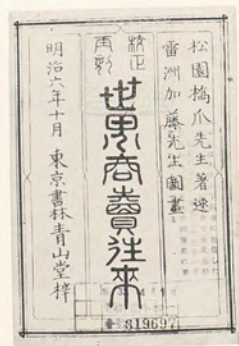 松園橋爪先生著述
雷洲加藤先生圖畫
校正
再刻
世界商賣往來
明治六年十月 東京書林青山堂梓
819697